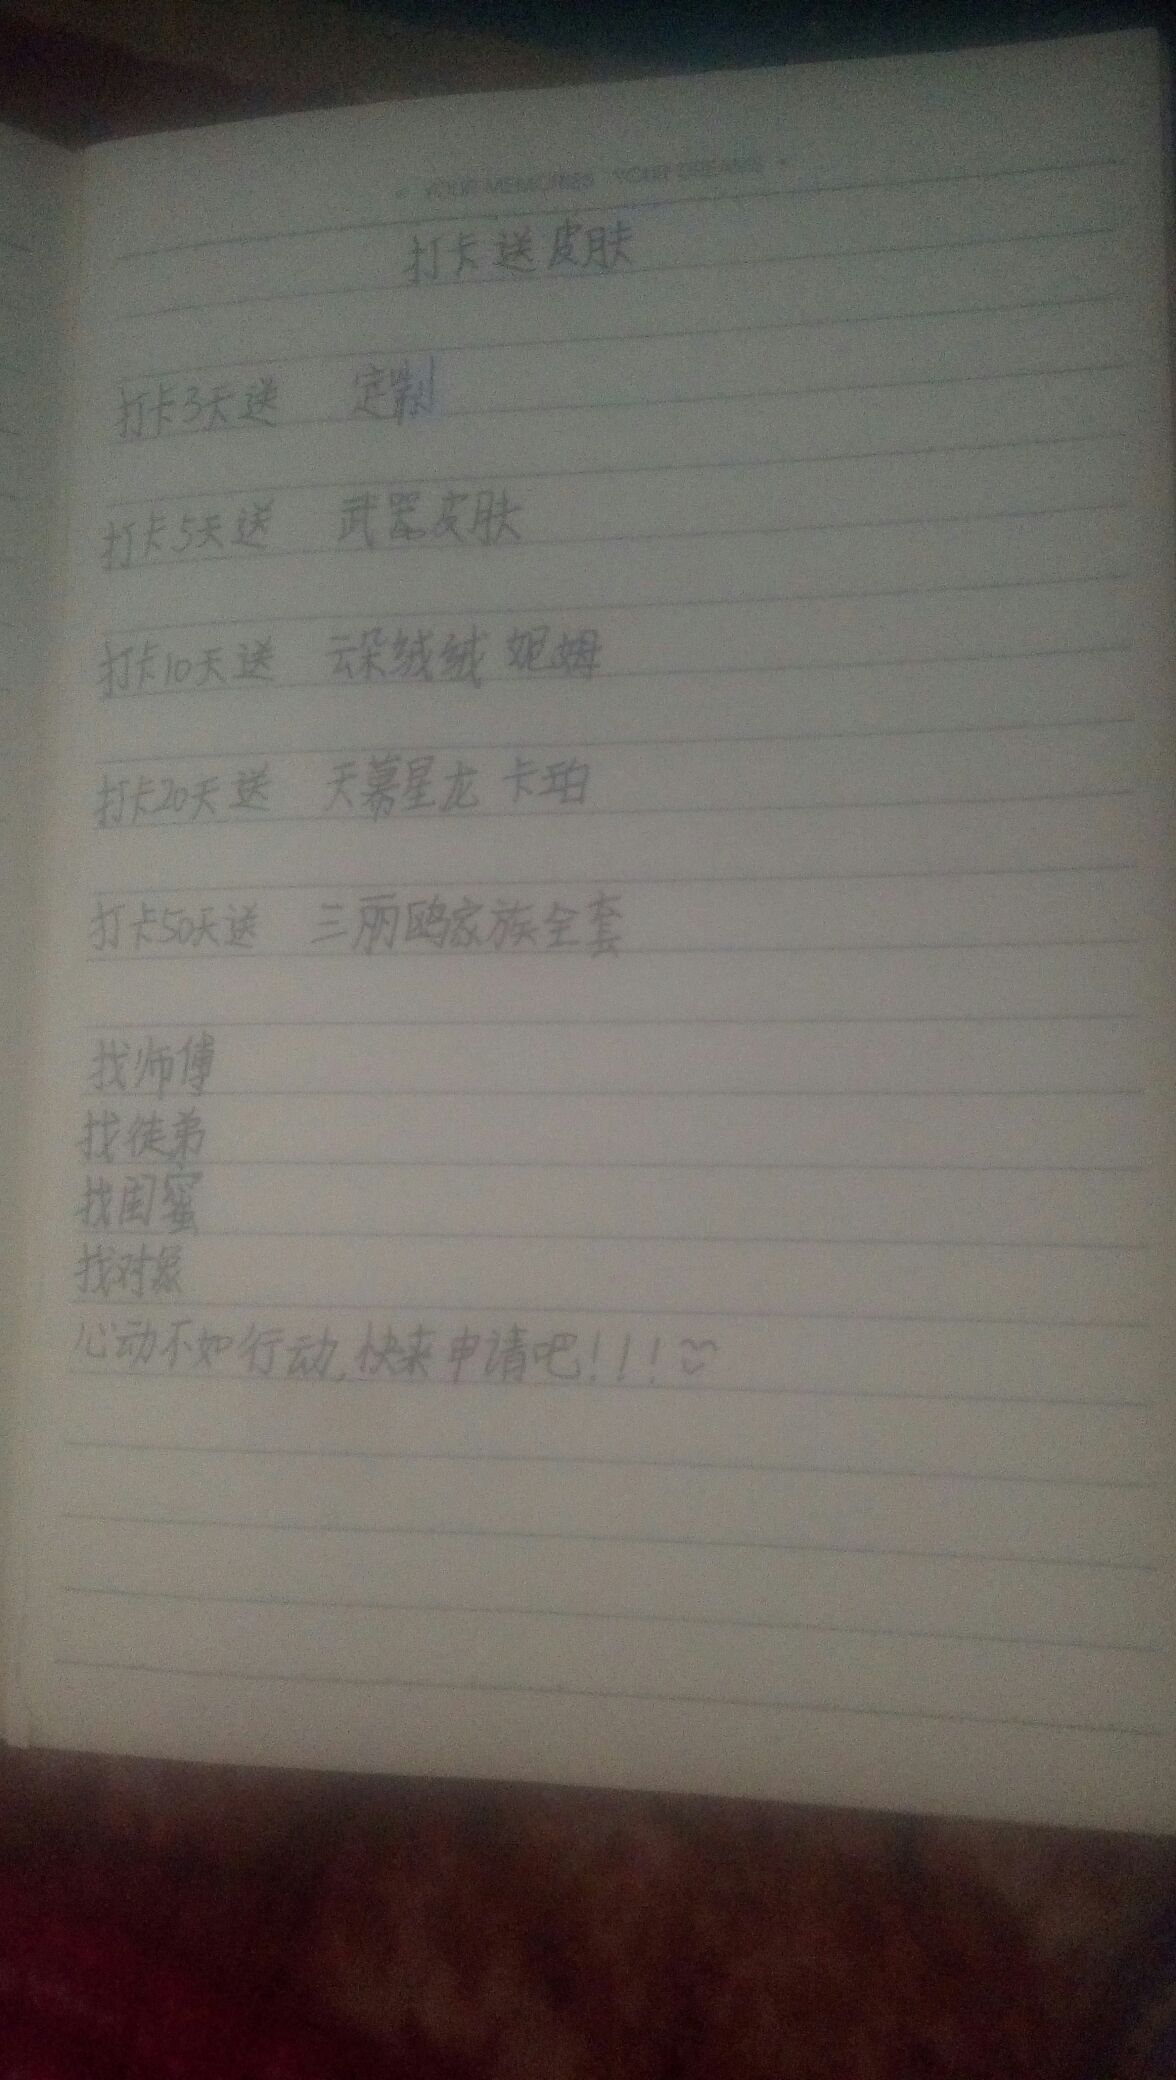 YOUR MEMORIES YOUR DREAMS
打卡送皮肤
打卡3天送 定制
打卡5天送 武器皮肤
打卡10天送 云朵绒绒 妮姆
打卡20天送 天幕星龙 卡珀
打卡50天送 三丽鸥家族全套
找师傅
找徒弟
找闺蜜
找对象
心动不如行动,快来申请吧!!!